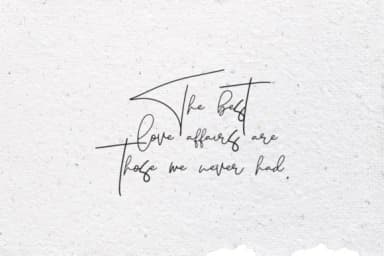 The best
love affairs are
those we never had.